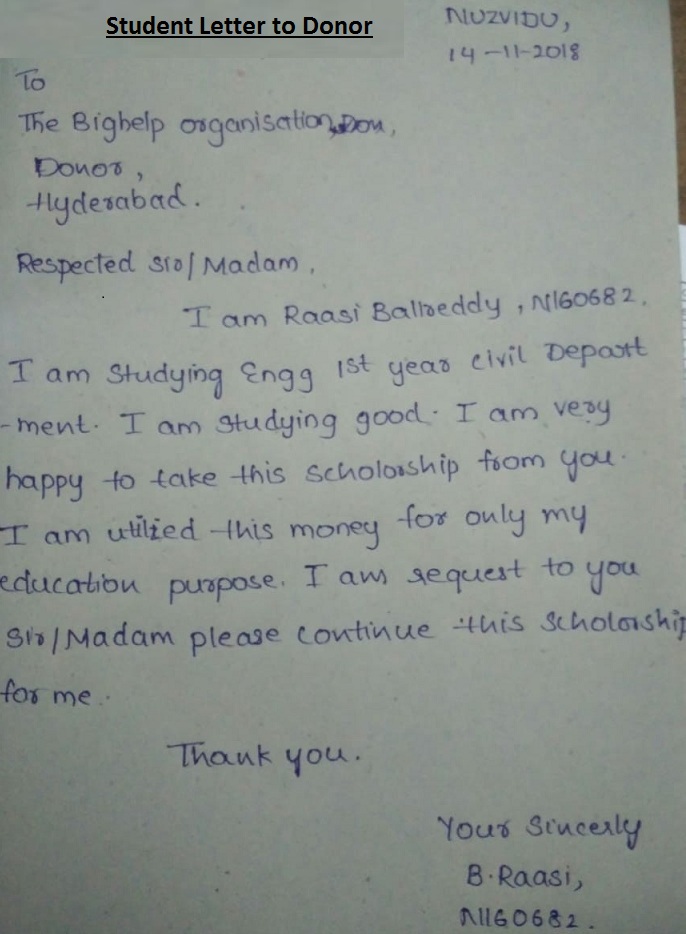 Student Letter to Donor
NUZVIDU,
14-11-2018
To
The Bighelp organisation,
Donor,
Hyderabad.
Respected Sir/Madam,
I am Raasi Ballreddy, N160682.
I am studying Engg 1st year civil Depart
-ment. I am studying good. I am very
happy to take this scholorship from you.
I am utilied this money for only my
education purpose. I am request to you
Sir/Madam please continue this scholorship
for me.
Thank you.
Your Sincerly
B.Raasi,
N160682.